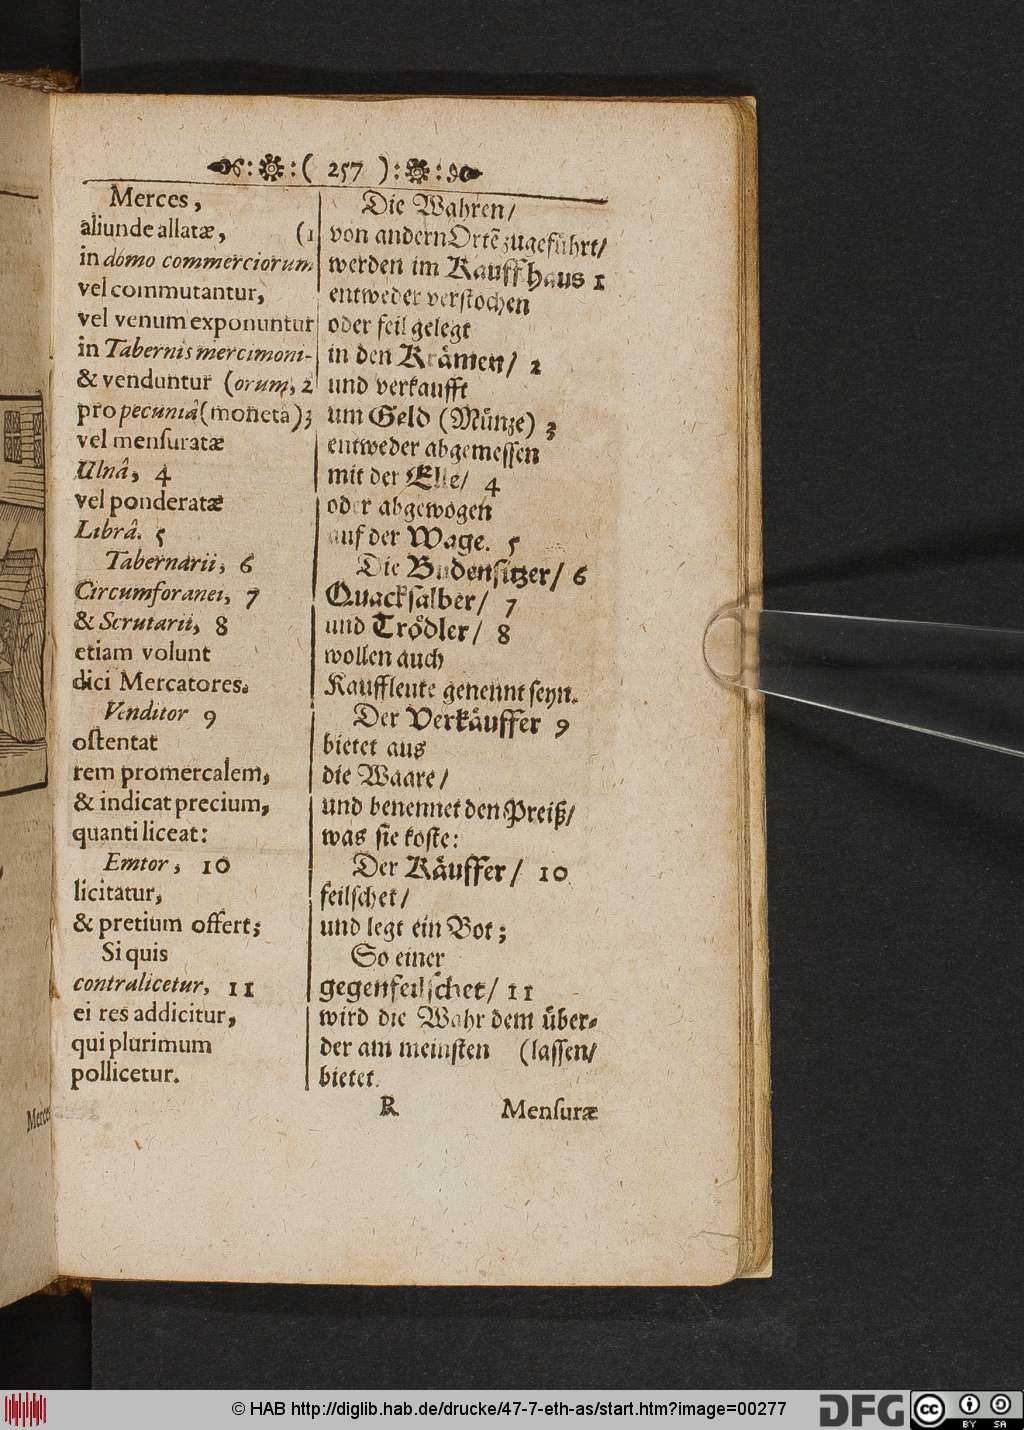 ( 257 )
Merces,
aliunde allatæ, (1
in domo commerciorum
vel commutantur,
vel venum exponuntur
in Tabernis mercimoni-
& venduntur (orum, 2
pro pecuniâ (moneta) 3
vel mensuratæ
Ulnâ, 4
vel ponderatæ
Librâ. 5
Tabernarii, 6
Circumforanei, 7
& Scrutarii, 8
etiam volunt
dici Mercatores.
Venditor 9
ostentat
rem promercalem,
& indicat precium,
quanti liceat:
Emtor, 10
licitatur,
& pretium offert;
Si quis
contralicetur, 11
ei res addicitur,
qui plurimum
pollicetur.
Die Wahren/
von andern Ortẽ zugeführt/
werden im Kauffhaus 1
entweder verstochen
oder feil gelegt
in den Krämen/ 2
und verkaufft
um Geld (Münze) 3
entweder abgemessen
mit der Elle/ 4
oder abgewogen
auf der Wage. 5
Die Budensitzer/ 6
Quacksalber/ 7
und Trödler/ 8
wollen auch
Kauffleute genennt seyn.
Der Verkäuffer 9
bietet aus
die Waare/
und benennet den Preiß/
was sie koste:
Der Käuffer/ 10
feilschet/
und legt ein Bot;
So einer
gegenfeilschet/ 11
wird die Wahr dem über-
der am meinsten (lassen/
bietet.
R Mensuræ
Merces
© HAB http://diglib.hab.de/drucke/47-7-eth-as/start.htm?image=00277
DFG
cc BY SA